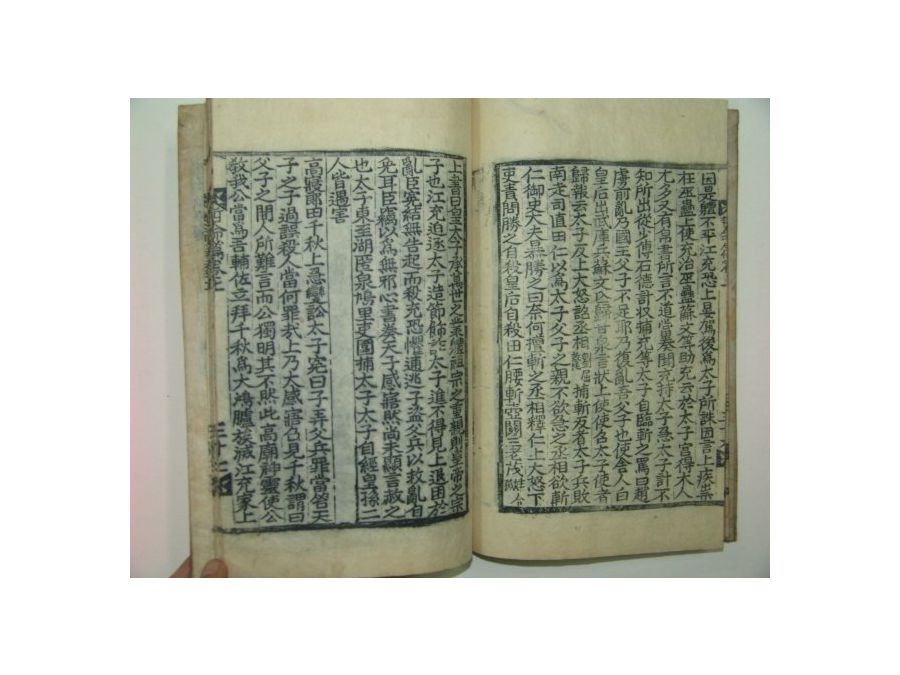 因是體不平江充恐上晏駕後爲太子所誅因言上疾祟
在巫蠱上使充治巫蠱蘇文等助充云於太子宮得木人
尤多又有帛書所言不道當奏聞充持太子急太子計不
知所出從少傅石德計収補充等太子自臨斬之罵曰趙
虜前亂乃國王父子不足耶乃復亂吾父子也使舍人白
皇后出武庫兵蘇文歸甘泉言狀上使使召太子使者
歸報云太子反上大怒詔丞相捕斬反者太子兵敗
南走司直田仁以爲太子父子之親不欲急之丞相欲斬
仁御史大夫暴勝之曰奈何擅斬之丞相釋仁上大怒下
吏責問勝之自殺皇后自殺田仁腰斬壺關三老茂
上書曰皇太子承萬世之業體祖宗之重親則皇帝之宗
子也江充迫逐太子造節餙詐太子進不得見上退困於
亂臣寃結無告起而殺充恐懼逋逃子盜父兵以救亂自
免耳臣竊以爲無邪心書奏天子感寤然尚未顯言赦之
也太子東至湖匿泉鳩里吏圍捕太子太子自經皇孫二
人皆遇害
高寢郎田千秋上急變訟太子寃曰子弄父兵罪當笞天
子之子過誤殺人當何罪哉上乃大感寤召見千秋謂曰
父子之間人所難言而公獨明其不然此高廟神靈使公
敎我公當爲吾輔佐立拜千秋爲大鴻臚族滅江充家上